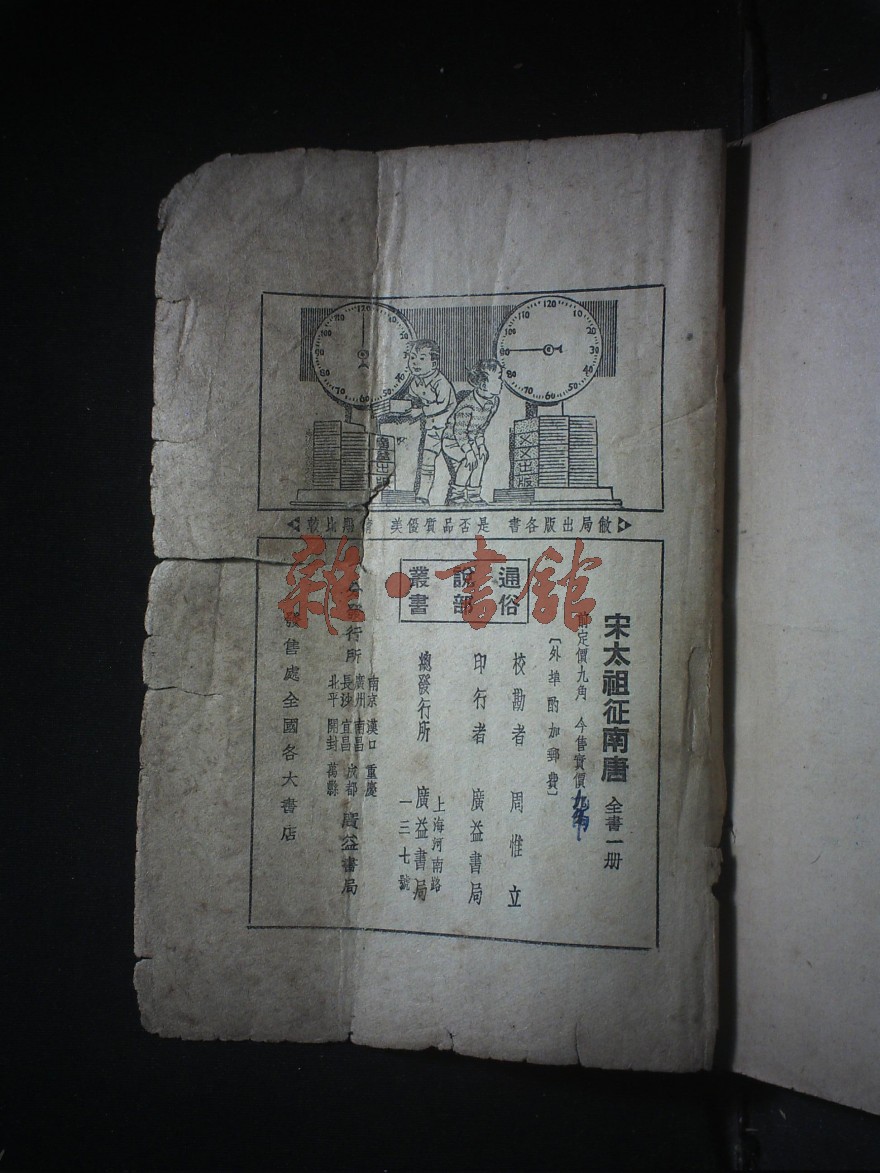 廣益出版
××出版
敝局出版各書 是否品質優美 請𣉞比較
宋太祖征南唐 全書一册
前定價九角 今售實價
〔外埠酌加郵費〕
通俗
說部
叢書
校勘者 周惟立
印行者 廣益書局
總發行所 上海河南路一三七號 廣益書局
分發行所 南京 漢口 重慶
廣州 南昌 成都
長沙 宜昌 萬縣
北平 開封
廣益書局
發售處全國各大書店
120 10 20 30 40 50 60 70 80 90 100 110
雜·書舘